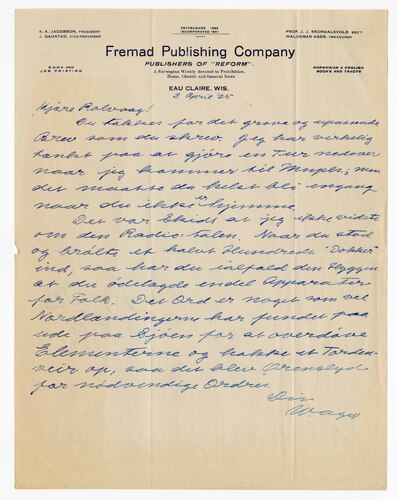 K. A. JACOBSON, PRESIDENT
J. GAUSTAD, VICE-PRESIDENT
ESTABLISHED 1886
INCORPORATED 1891
PROF. J. J. SKORDALSVOLD SEC'Y
WALDEMAR AGER, TREASURER
Fremad Publishing Company
PUBLISHERS OF "REFORM".
BOOK AND
JOB PRINTING
A Norwegian Weekly devoted to Prohibition,
Home, Church and General News
NORWEGIAN & ENGLISH
BOOKS AND TRACTS
EAU CLAIRE, WIS.
3 April '25
Kjære Rolvaag!
Du takkes for det grove og upassende
Brev som du skrev. Jeg har virkelig
tænkt paa at gjöre en Tur nedover
naar jeg kommer til Mnpls; men
det maatte da helst bli engang
naar du ikke er hjemme.
Det var Skidt at jeg ikke vidste
om den Radio-talen. Naar du stod
og brölte et halvt Hundrede "Dokker"
ind, saa har du ialfald den Hyggen
at du ödelagde endel Apparater
for Folk. Det Ord er noget som vel
Nordlændingerne har fundet paa
ude paa Sjöen for at overdöve
Elementerne og takke et Torden-
veir op, saa det blev Ørenslyd
for nödvendige Ordres.
Din
W. Ager